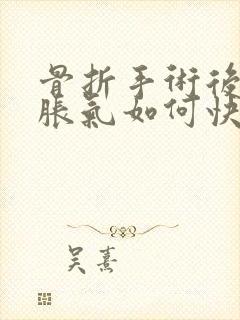 骨折手術後
脹氣如何快
吴熹